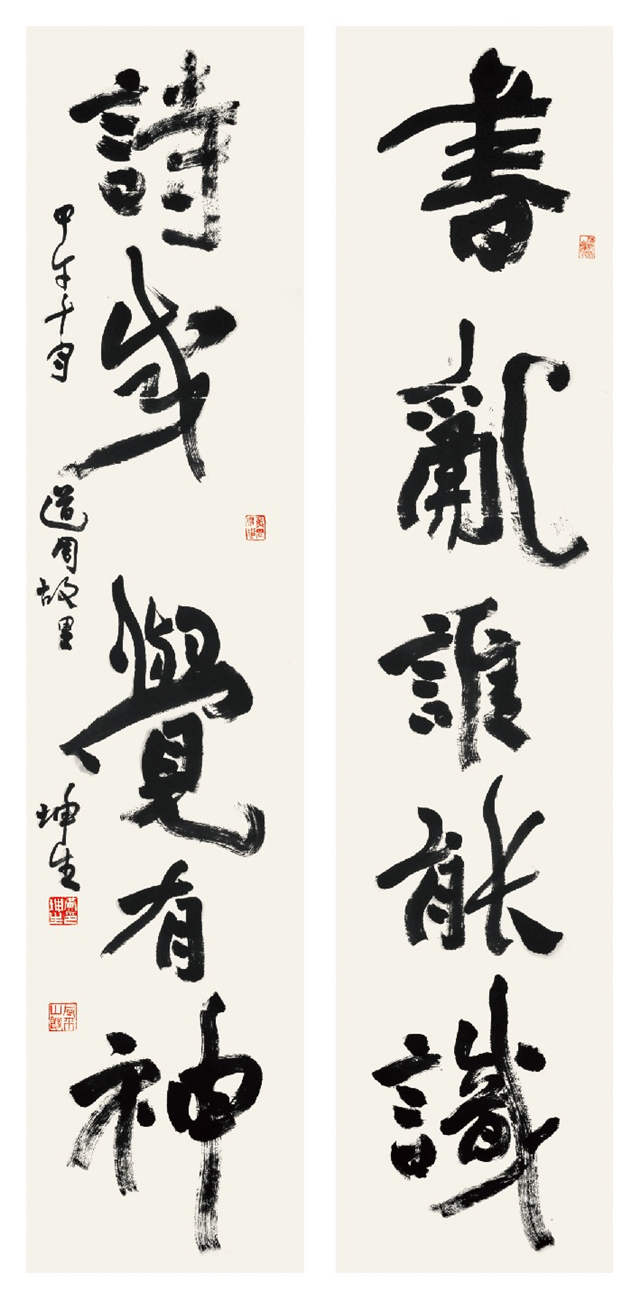 書亂誰能識
詩成覺有神
甲午十月
道周故里
坤生